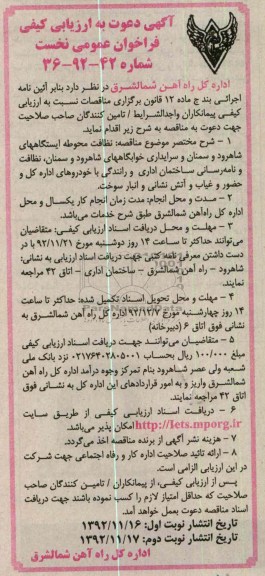 آگهی دعوت به ارزیابی کیفی
فراخوان عمومی نخست
شماره ۴۲-۹۲-۳۶
اداره کل راه آهن شمالشرق در نظر دارد بنابر آئین نامه
اجرائی بند ج ماده ۱۲ قانون برگزاری مناقصات نسبت به ارزیابی
کیفی پیمانکاران واجدالشرایط / تامین کنندگان صاحب صلاحیت
جهت دعوت به مناقصه به شرح زیر اقدام نماید.
۱ - شرح مختصر موضوع مناقصه: نظافت محوطه ایستگاههای
شاهرود و سمنان و سرایداری خوابگاههای شاهرود و سمنان، نظافت
و نامه‌رسانی ساختمان اداری و رانندگی با خودروهای اداره کل و
حضور و غیاب و آتش نشانی و انبار سوخت.
۲ - مدت و محل انجام: مدت زمان انجام کار یکسال و محل
اداره کل راه‌آهن شمالشرق طبق شرح خدمات می‌باشد.
۳ - مهلت و محل دریافت اسناد ارزیابی کیفی: متقاضیان
می‌توانند حداکثر تا ساعت ۱۴ روز دوشنبه مورخ ۹۲/۱۱/۲۱ با در
دست داشتن معرفی نامه کتبی جهت دریافت اسناد ارزیابی به نشانی:
شاهرود - راه آهن شمالشرق - ساختمان اداری - اتاق ۴۲ مراجعه
نمایند.
۴ - مهلت و محل تحویل اسناد تکمیل شده: حداکثر تا ساعت
۱۴ روز چهارشنبه مورخ ۹۲/۱۲/۷ اداره کل راه آهن شمالشرق به
نشانی فوق اتاق ۶ (دبیرخانه)
۵ - متقاضیان می‌توانند جهت دریافت اسناد ارزیابی کیفی
مبلغ ۱۰۰/۰۰۰ ریال بحساب ۰۲۱۷۶۴۰۲۸۰۵۰۰۱ نزد بانک ملی
شعبه ولی عصر شاهرود بنام تمرکز وجوه درآمد اداره کل راه آهن
شمالشرق واریز و به امور قراردادهای این اداره کل به نشانی فوق
اتاق ۴۲ مراجعه نمایند.
۶ - دریافت اسناد ارزیابی کیفی از طریق سایت
http://iets.mporg.ir امکان پذیر می‌باشد.
۷ - هزینه نشر آگهی از برنده مناقصه اخذ می‌گردد.
۸ - ارائه تائید صلاحیت اداره کار و رفاه اجتماعی جهت شرکت
در این ارزیابی الزامی است.
پس از ارزیابی کیفی، از پیمانکاران / تامین کنندگان صاحب
صلاحیت که حداقل امتیاز لازم را کسب نموده باشند جهت دریافت
اسناد مناقصه دعوت بعمل خواهد آمد.
تاریخ انتشار نوبت اول: ۱۳۹۲/۱۱/۱۶
تاریخ انتشار نوبت دوم: ۱۳۹۲/۱۱/۱۷
اداره کل راه آهن شمالشرق